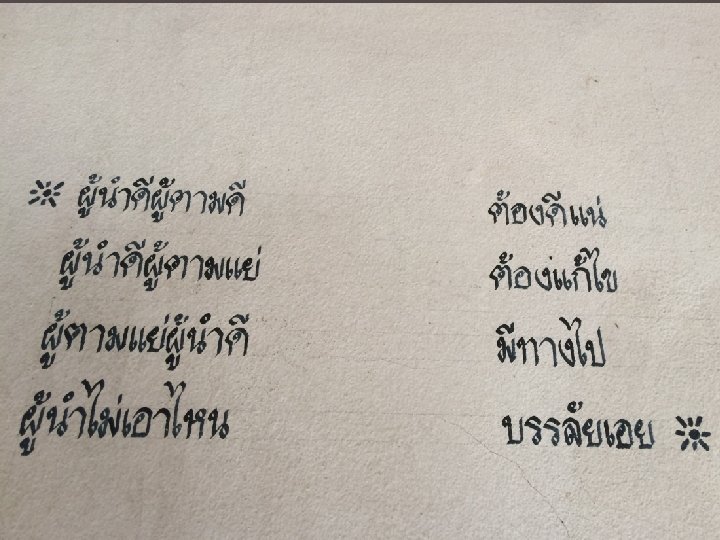 ผู้นำดีผู้ตามดี ต้องดีแน่
ผู้นำดีผู้ตามแย่ ต้องแก้ไข
ผู้ตามแย่ผู้นำดี มีทางไป
ผู้นำไม่เอาไหน บรรลัยเอย